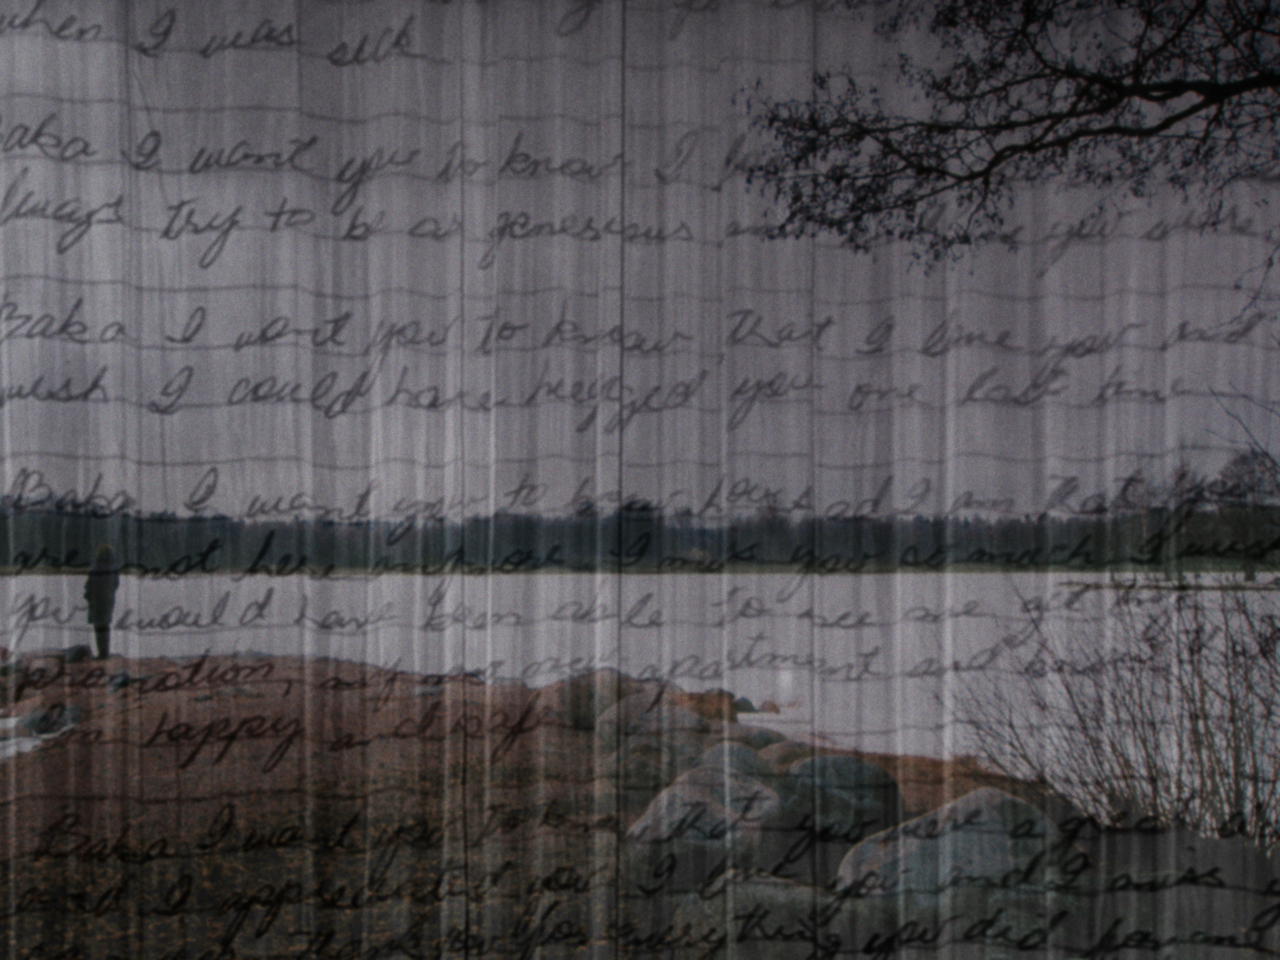 when I was sick
Baka I want you to know I
always try to be as generous and you were
Baka I want you to know that I love you and
wish I could have hugged you one last time
Baka I want you to know how sad I am that you
are not here anymore. I miss you so much. I wish
you would have been able to see me get the
promotion, my own apartment and know
I'm happy and safe
Baka I want you to know that you were a great
and I appreciated you I love you and I miss
thank you for everything you did for me